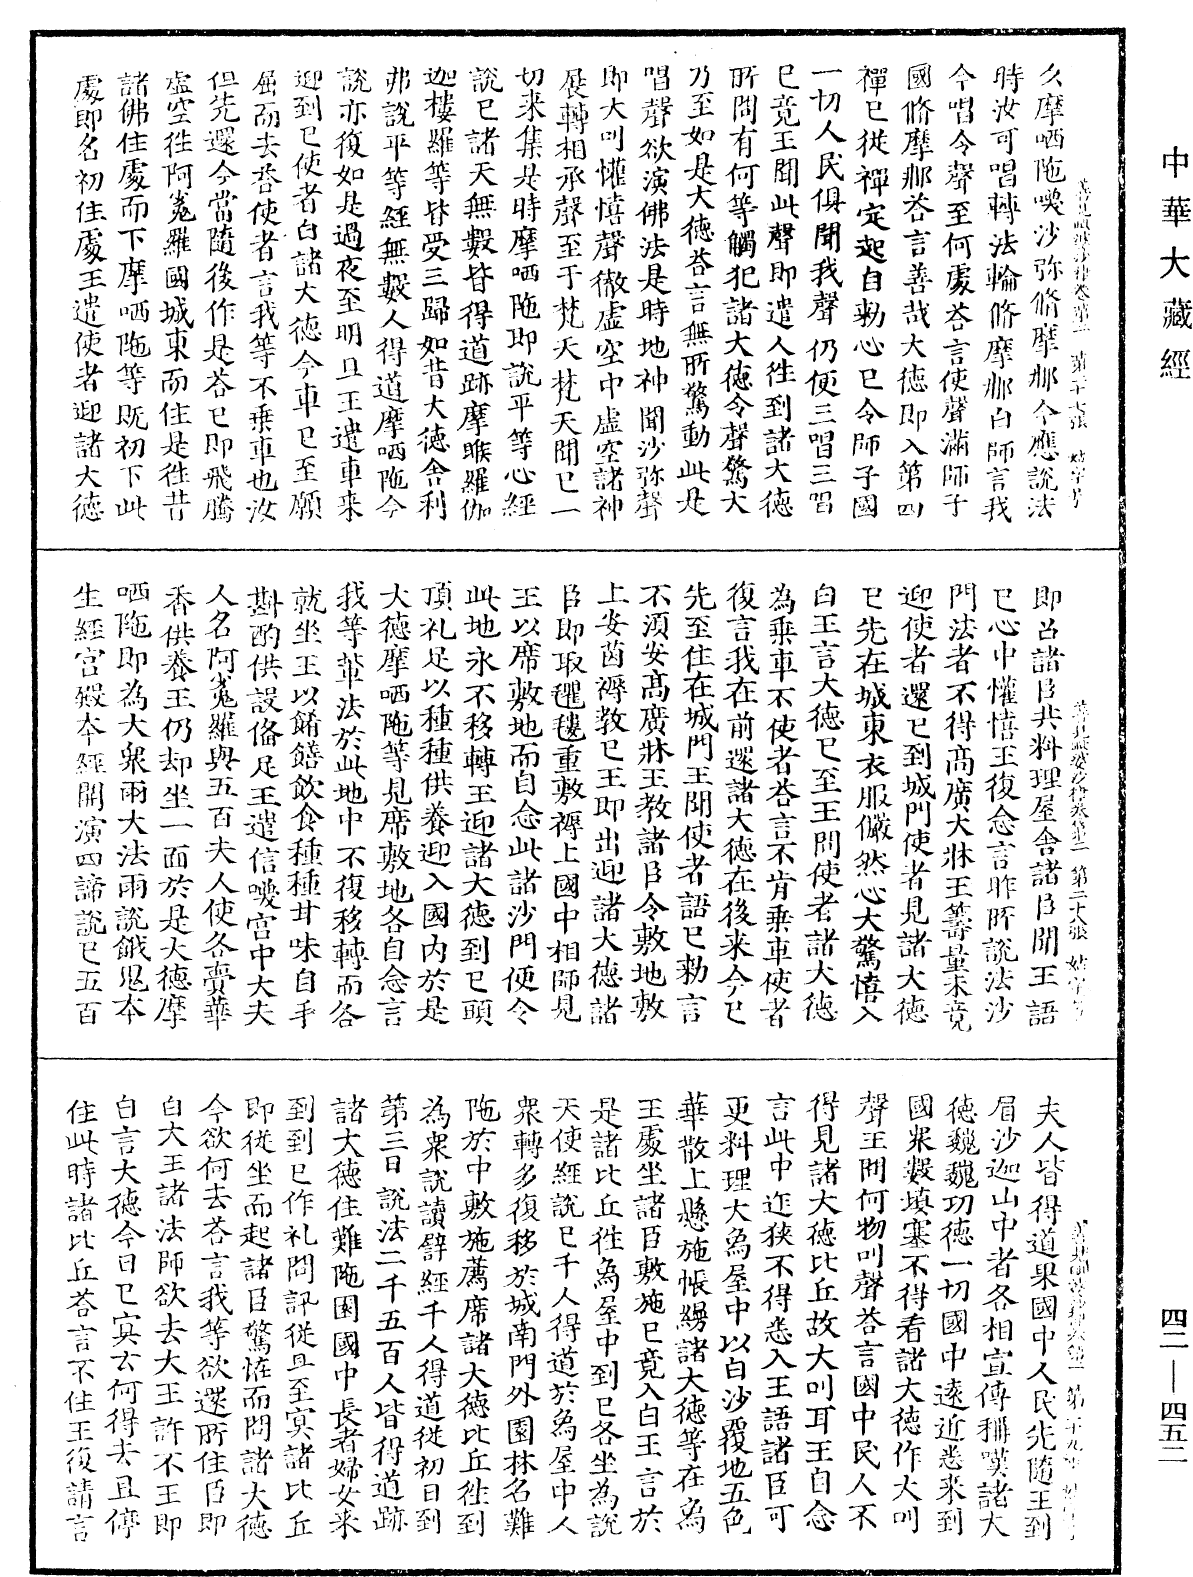 中華大藏經
久摩哂陁喚沙弥脩摩那今應說法
時汝可唱轉法輪脩摩那白師言我
今唱令聲至何處荅言使聲滿師子
國脩摩那荅言善哉大德即入第四
禪已從禪定起自勑心已令師子國
一切人民俱聞我聲仍便三唱三唱
已竟王聞此聲即遣人徃到諸大德
所問有何等觸犯諸大德令聲驚大
乃至如是大德荅言無所驚動此是
唱聲欲演佛法是時地神聞沙弥聲
即大叫懽憘聲徹虛空中虛空諸神
展轉相承聲至于梵天梵天聞已一
切来集是時摩哂陁即說平等心經
說已諸天無數皆得道跡摩睺羅伽
迦樓羅等皆受三歸如昔大德舍利
弗說平等經無數人得道摩哂陁今
說亦復如是過夜至明旦王遣車来
迎到已使者白諸大德今車已至願
屈而去荅使者言我等不乗車也汝
但先還今當隨後作是荅已即飛騰
虛空徃阿㝹羅國城東而住是徃昔
諸佛住處而下摩哂陁等既初下此
處即名初住處王遣使者迎諸大德
即召諸臣共料理屋舍諸臣聞王語
已心中懽憘王復念言昨所說法沙
門法者不得高廣大牀王籌量未竟
迎使者還已到城門使者見諸大德
已先在城東衣服儼然心大驚憘入
白王言大德已至王問使者諸大德
為乗車不使者荅言不肯乗車使者
復言我在前還諸大德在後来今已
先至住在城門王聞使者語已勑言
不湏安高廣牀王教諸臣令敷地敷
上安茵褥教已王即出迎諸大德諸
臣即取氍毺重敷褥上國中相師見
王以席敷地而自念此諸沙門便令
此地永不移轉王迎諸大德到已頭
頂礼足以種種供養迎入國內於是
大德摩哂陁等見席敷地各自念言
我等軰法於此地中不復移轉而各
就坐王以餚饍飲食種種甘味自手
斟酌供設俻足王遣信喚宮中大夫
人名阿㝹羅與五百夫人使各賷華
香供養王仍却坐一面於是大德摩
哂陁即為大衆雨大法雨說餓鬼本
生經宮殿本經開演四諦說已五百
夫人皆得道果國中人民先隨王到
眉沙迦山中者各相宣傳稱嘆諸大
德巍巍功德一切國中遠近悉来到
國衆數填塞不得看諸大德作大叫
聲王問何物叫聲荅言國中民人不
得見諸大德比丘故大叫耳王自念
言此中迮狹不得悉入王語諸臣可
更料理大為屋中以白沙覆地五色
華散上懸施帳縵諸大德等在為
王處坐諸臣敷施已竟入白王言於
是諸比丘徃為屋中到已各坐為說
天使經說已千人得道於為屋中人
衆轉多復移於城南門外園林名難
陁於中敷施薦席諸大德比丘徃到
為衆說讀譬經千人得道從初日到
第三日說法二千五百人皆得道跡
諸大德住難陁園國中長者婦女来
到到已作礼問訊從旦至㝠諸比丘
即從坐而起諸臣驚恠而問諸大德
今欲何去荅言我等欲還所住臣即
白大王諸法師欲去大王許不王即
白言大德今日已㝠云何得去且停
住此時諸比丘荅言不住王復請言
四二—四五二